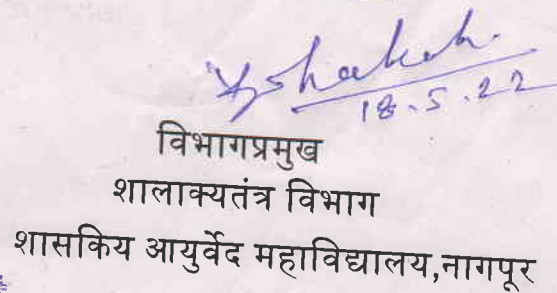 18.5.22
विभागप्रमुख
शालाक्यतंत्र विभाग
शासकिय आयुर्वेद महाविद्यालय,नागपूर